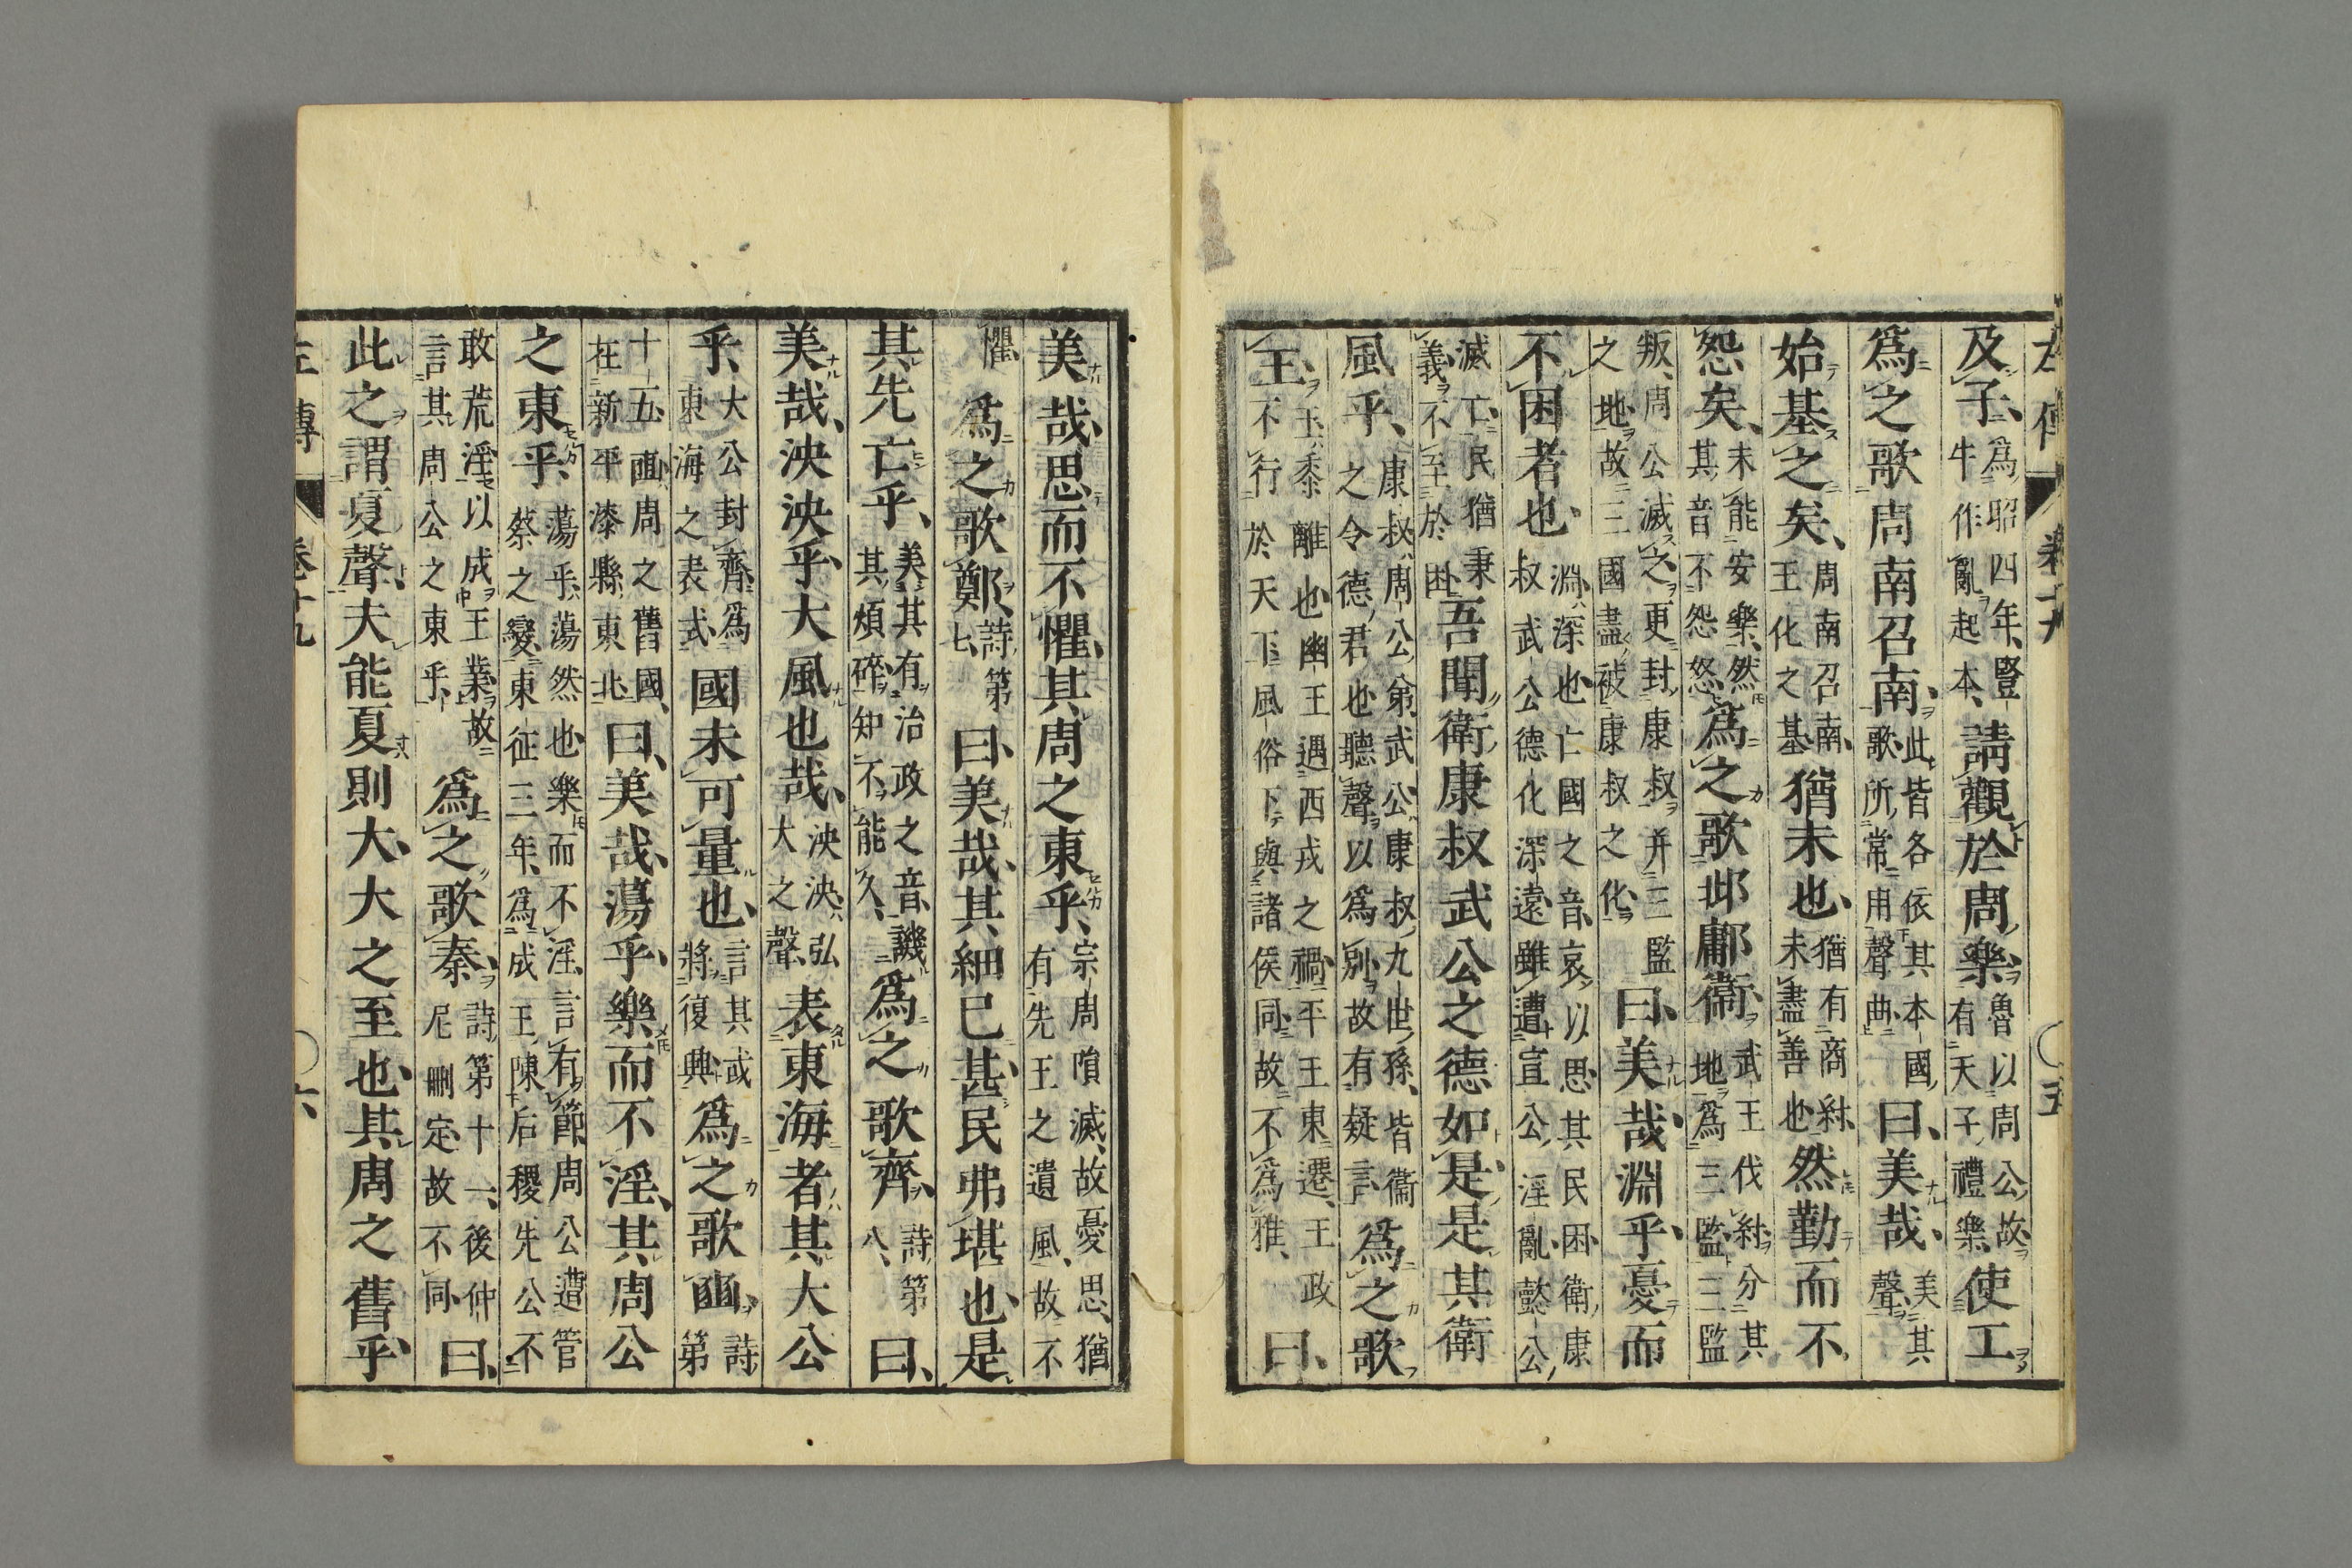 左傳 卷十九 ○五
及子、爲昭四年、豎牛作亂起本、請觀於周樂、魯以周公故有天子禮樂、使工
爲之歌周南召南、此皆各依其本國歌所常用聲曲曰、美哉、美其聲
始基之矣、周南召南王化之基猶未也、猶有商紂未盡善也然勤而不
怨矣、未能安樂、然其音不怨怒爲之歌邶鄘衞、武王伐紂分其地爲三監三監
叛、周公滅之更封康叔并三監之地故三國盡被康叔之化曰、美哉、淵乎、憂而
不困者也、淵深也亡國之音哀以思其民困衞康叔武公德化深遠雖遭宣公淫亂懿公
滅亡民猶秉義不至於困吾聞衛康叔武公之德如是、是其衛
風乎、康叔周公弟武公康叔九世孫、皆衞之令德君也聽聲以爲別故有疑言爲之歌
王、王黍離也幽王遇西戎之禍平王東遷、王政不行於天下風俗下與諸侯同故不爲雅、曰、
美哉、思而不懼、其周之東乎、宗周隕滅、故憂思、猶有先王之遺風、故不
懼爲之歌鄭、詩第七曰、美哉、其細已甚、民弗堪也、是
其先亡乎、美其有治政之音、譏其煩碎知不能久、爲之歌齊、詩第八、曰、
美哉、泱泱乎、大風也哉、泱泱弘大之聲表東海者、其大公
乎、大公封齊爲東海之表式國未可量也、言其或將復興爲之歌豳、詩第
十五豳周之舊國、在新平漆縣東北曰、美哉、蕩乎、樂而不淫、其周公
之東乎、蕩乎蕩然也樂而不淫言有節周公遭管蔡之變東征三年、爲成王陳后稷先公不
敢荒淫以成王業故言其周公之東乎、爲之歌秦、詩第十一、後仲尼刪定故不同曰、
此之謂夏聲、夫能夏則大、大之至也、其周之舊乎、
左傳 卷十九 ○六